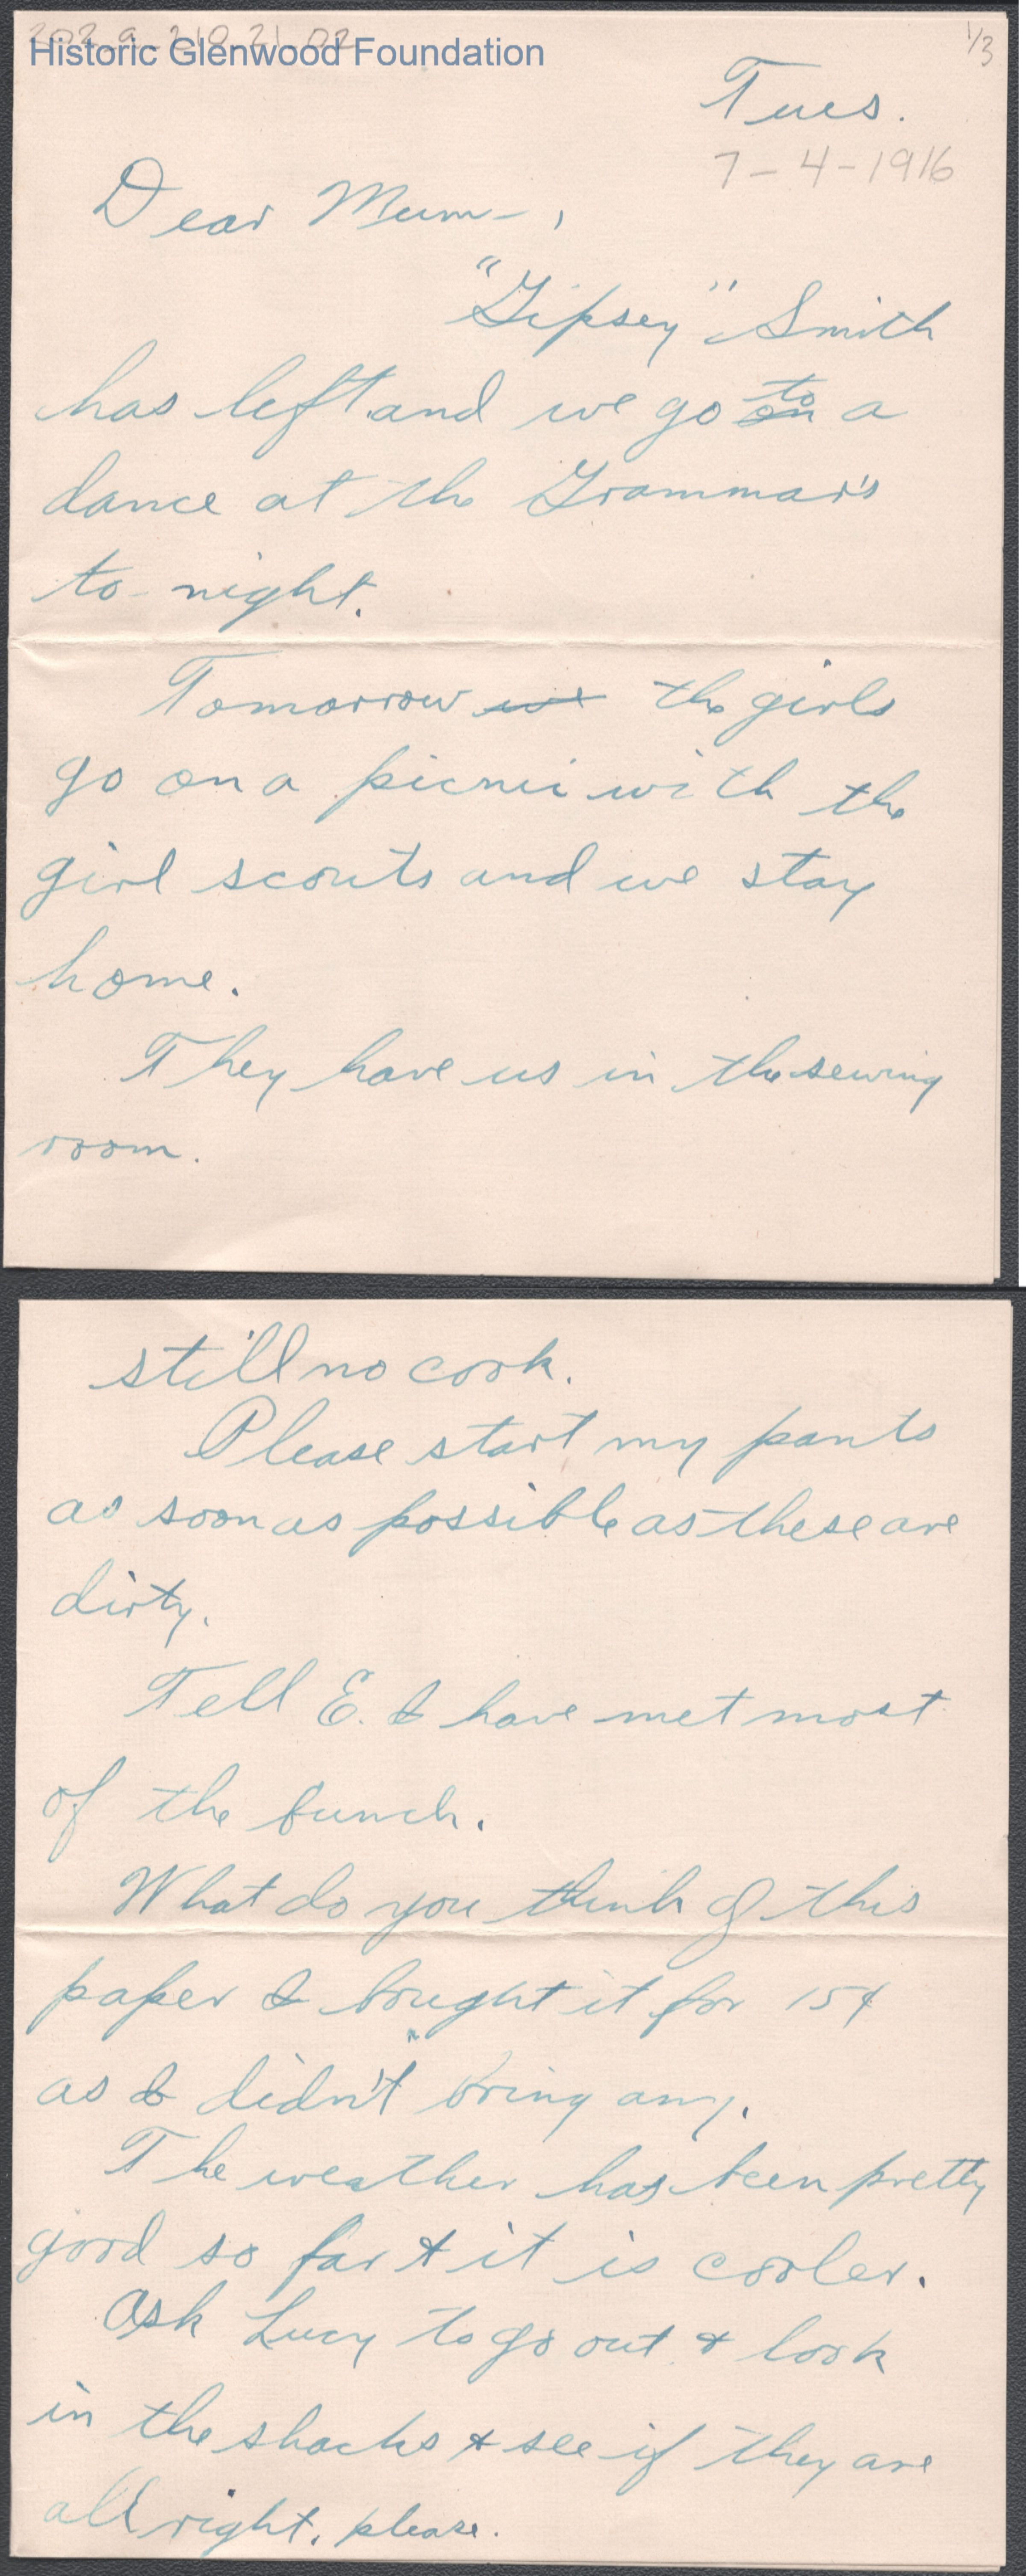 202.9.210.21.02
Historic Glenwood Foundation
1/3
Tues.
7-4-1916
Dear Mum-,
"Gipsey" Smith
has left and we go on to a
dance at the Grammar's
to-night.
Tomorrow we the girls
go on a picnic with the
girl scouts and we stay
home.
They have us in the sewing
room.
still no cook.
Please start my pants
as soon as possible as these are
dirty.
Tell E. I have met most
of the bunch.
What do you think of this
paper I bought it for 15¢
as I didn't bring any.
The weather has been pretty
good so far & it is cooler.
Ask Lucy to go out & look
in the shacks & see if they are
all right, please.